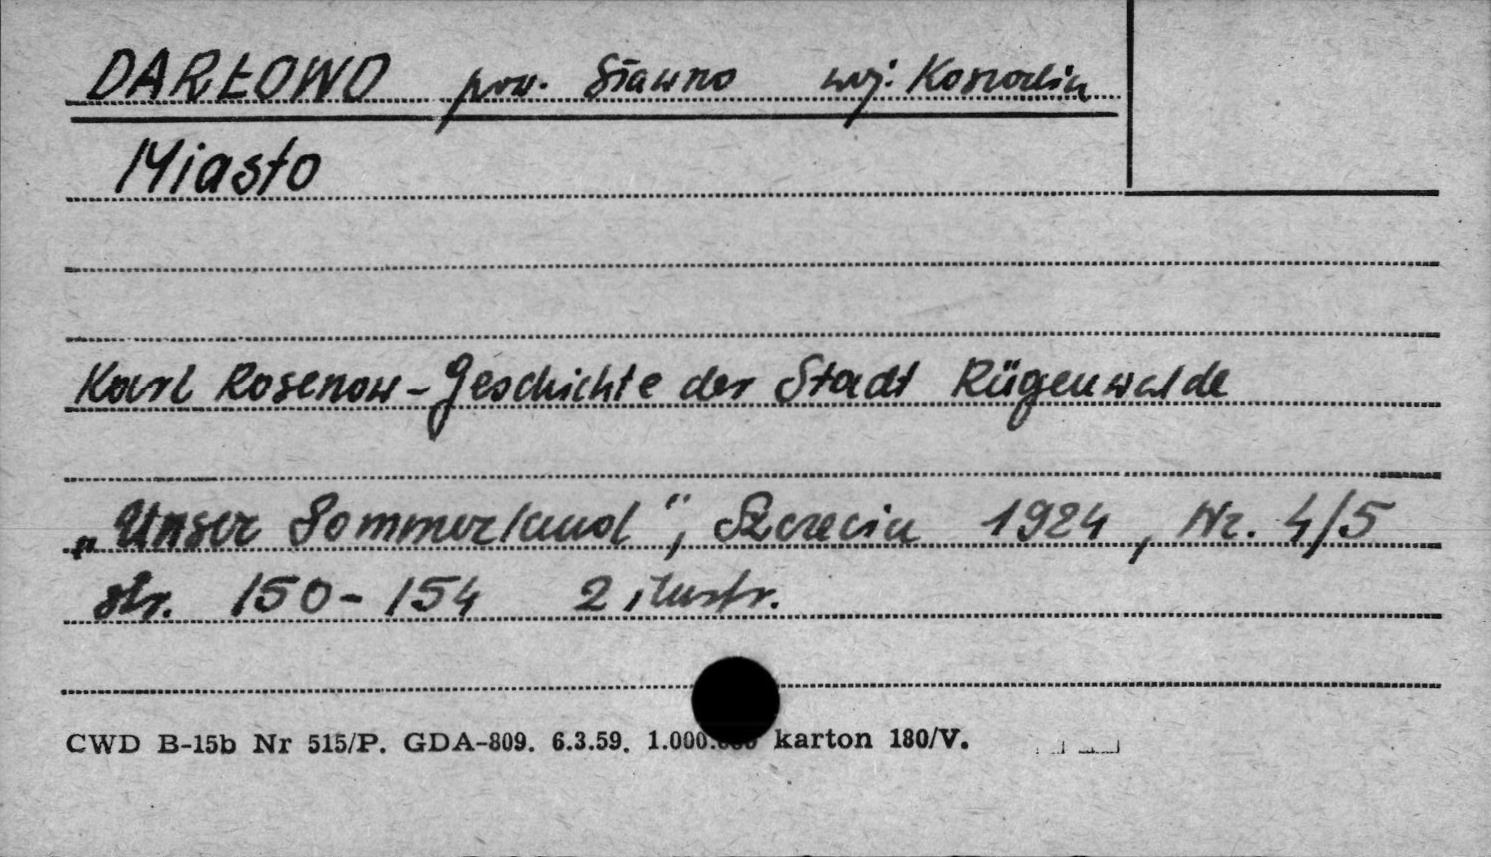 DARŁOWO pow. Sławno woj. Koszalin
Miasto
Karl Rosenow - Geschichte der Stadt Rügenwalde
„Unser Pommerland", Szczecin 1924, Nr. 4/5
str. 150-154 2 ilustr.
CWD B-15b Nr 515/P. GDA-809. 6.3.59. karton 180/V.